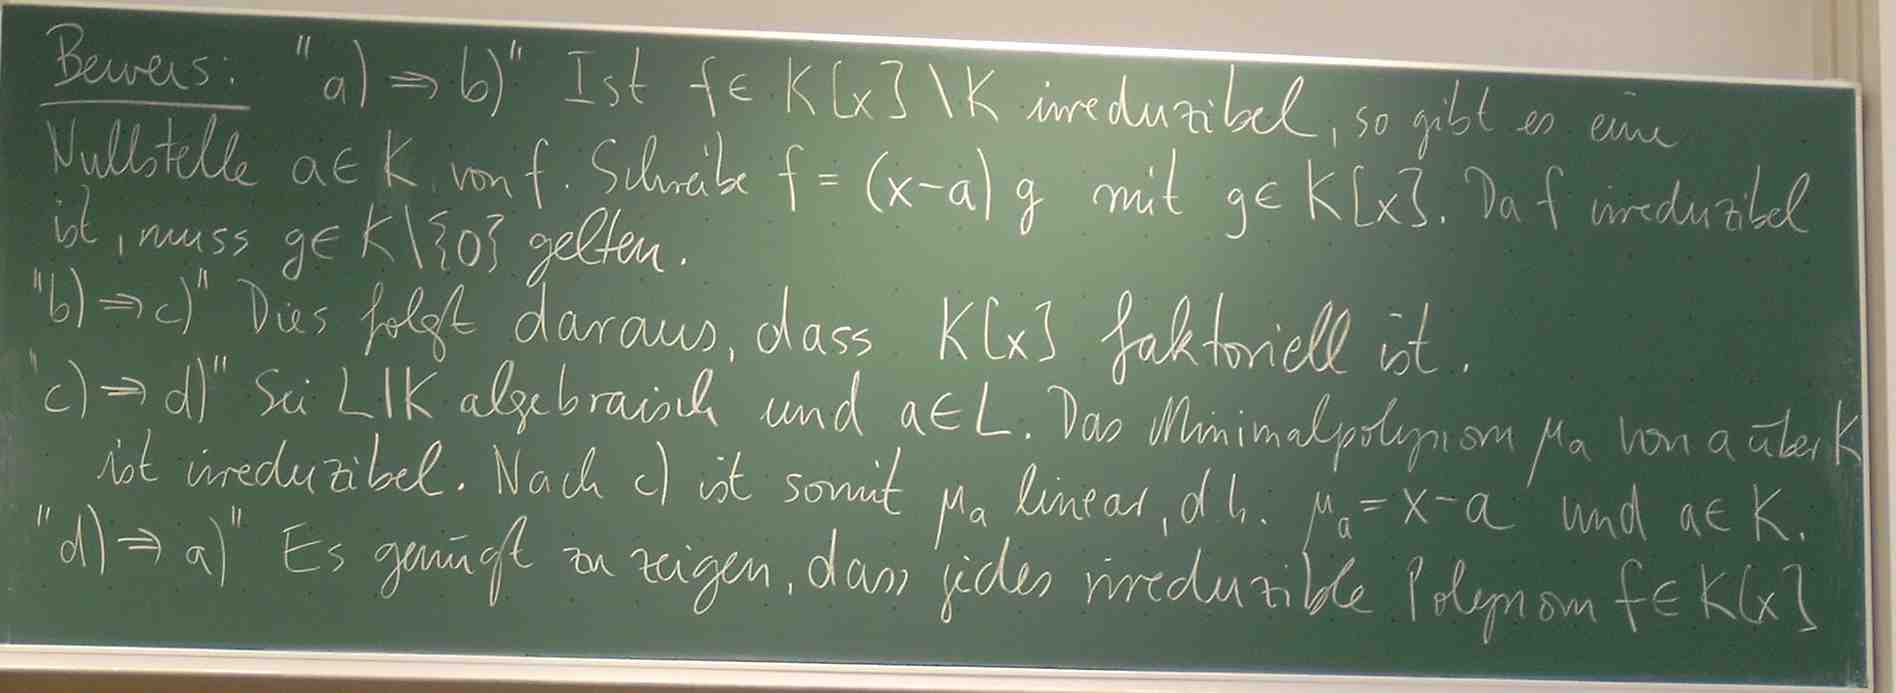 Beweis: "a) ⇒ b)" Ist f ∈ K[x] \ K irreduzibel, so gibt es eine
Nullstelle a ∈ K von f. Schreibe f = (x-a) g mit g ∈ K[x]. Da f irreduzibel
ist, muss g ∈ K\{0} gelten.
"b) ⇒ c)" Dies folgt daraus, dass K[x] faktoriell ist.
"c) ⇒ d)" Sei L|K algebraisch und a ∈ L. Das Minimalpolynom μₐ von a über K
ist irreduzibel. Nach c) ist somit μₐ linear, d h. μₐ = x-a und a ∈ K.
"d) ⇒ a)" Es genügt zu zeigen, dass jedes irreduzible Polynom f ∈ K[x]